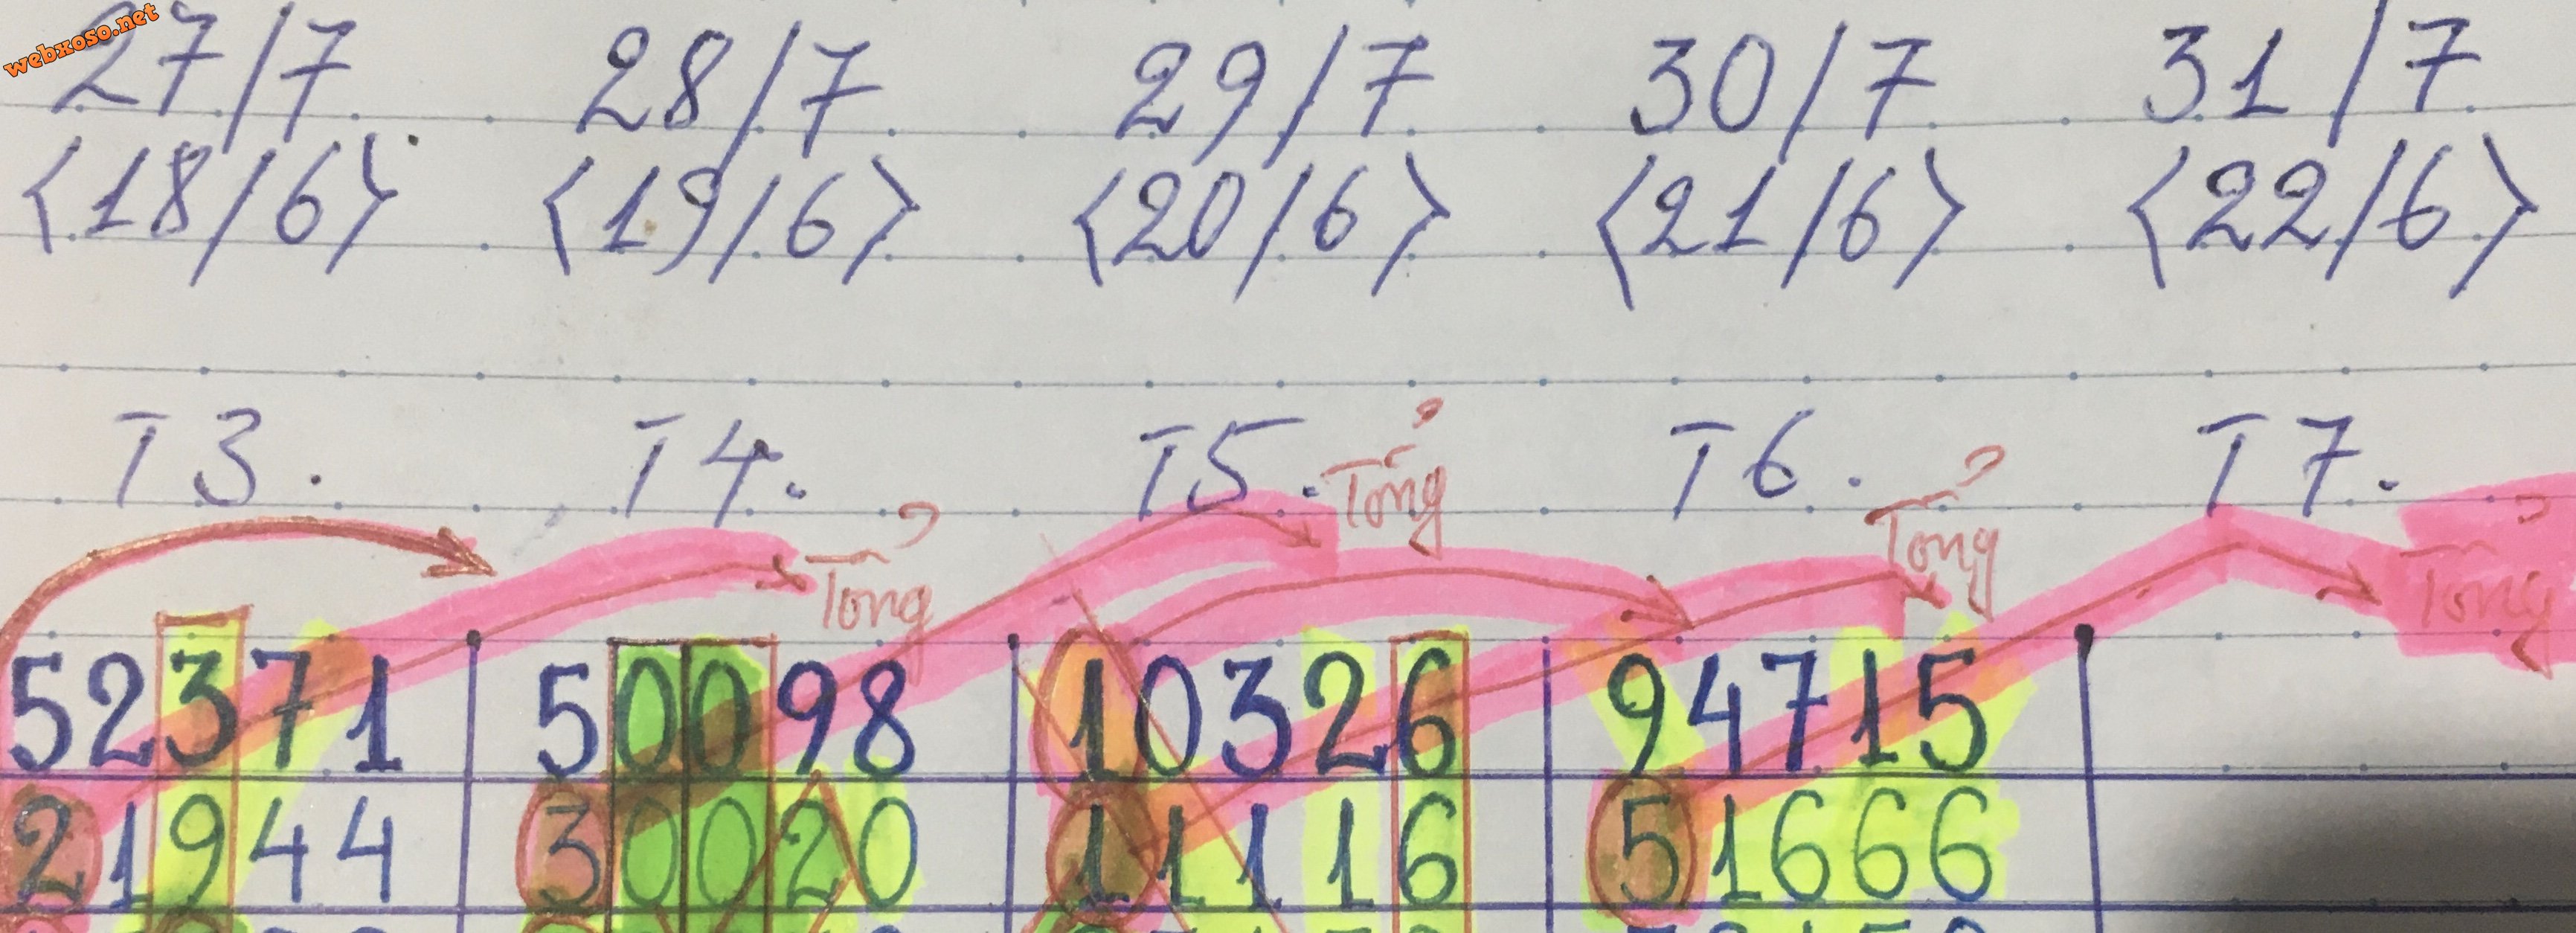 webxoso.net
27/7 28/7 29/7 30/7 31/7
<18/6> <19/6> <20/6> <21/6> <22/6>
T3. T4. T5. T6. T7.
Tổng Tổng Tổng Tổng
52371 50098 10326 94715
21944 30020 11116 51666